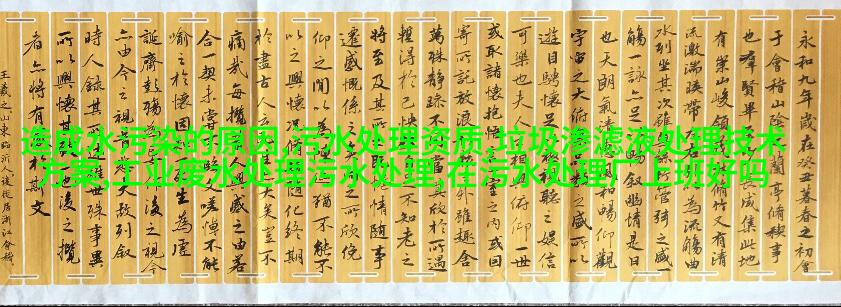 造成水污染的原因,污水处理资质,垃圾渗滤液处理技术
方案,工业废水处理污水处理,在污水处理厂上班好吗
永和九年歲在癸丑暮春之初會
于會稽山陰蘭亭脩稧事
也群賢畢長咸集此地
有崇山峻領脩竹又有清
流激湍暎帶為流觴曲
水列坐其次雖管弦之盛一
觴一詠亦足叙幽情是日
也天朗氣清和暢仰觀
宇宙之大俯之盛所以
遊目騁懷足視聽之娛信
可樂也夫人之相俯仰一世
或取諸懷抱悟言室之內或因
寄所託放浪外雖趣舍
萬殊靜躁不同欣於所遇
暫得於己快不知老之
將至及其所情随事
遷感慨係之之所欣俛
仰之閒以為猶不能不
以之興懷況脩隨化終期
於盡古人云大矣豈不
痛哉每攬興感之由若
合一契未嘗嗟悼不能
喻之於懷固生為虛
誕齊彭殤為後之視今
亦由今之視夫故列叙
時人錄其所世殊事異
所以興懷其後之攬
者亦將有斯文
王羲之山東臨沂人後徙居浙江會稽